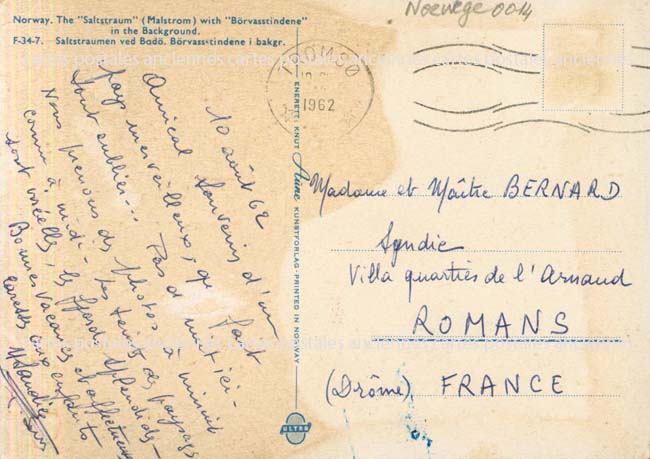 Norway. The "Saltstraum" (Malstrom) with "Börvasstindene"
in the Background.
F-34-7. Saltstraumen ved Bodö. Börvasstindene i bakgr.
Noevege 0014
cartes postales anciennes cartes postales anciennes cartes postales anciennes
TROMSØ
1962
10 août 62
Amical souvenir d'un
pays merveilleux, qui fait
tout oublier... Pas de nuit ici -
Nous prenons des photos à minuit
comme à midi - Les teintes des paysages
sont irréelles, les fjords splendides -
Bonnes vacances et affectueuses
caresses aux enfants
ENERETT: KNUT Aune KUNSTFORLAG - PRINTED IN NORWAY
ULTRA
Madame et Maître BERNARD
Syndic
Villa quartier de l'Arnaud
ROMANS
(Drôme) FRANCE